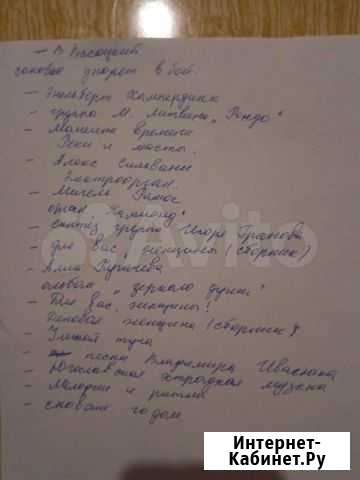 - В Высоцкий
сыновья уходят в бой.
- Энгельберт Хампердинк
- группа М. Литвина „Рондо"
- Машина времени
Реки и мосты.
- Алекс Сильвани
Электроорган.
- Мигель Рамос
орган „Хаммонд"
- синтез группа Игоря Гранова
- для вас, женщины (сборник)
- Алла Пугачева
альбом „зеркало души"
- Для вас, женщины!
Деловая женщина (сборник)
- Земной тура
- песни Владимира Ивасюка
- Югославская эстрадная музыка
- Мелодии и ритмы
- с новым годом
Avito
Интернет-
Кабинет.Ру